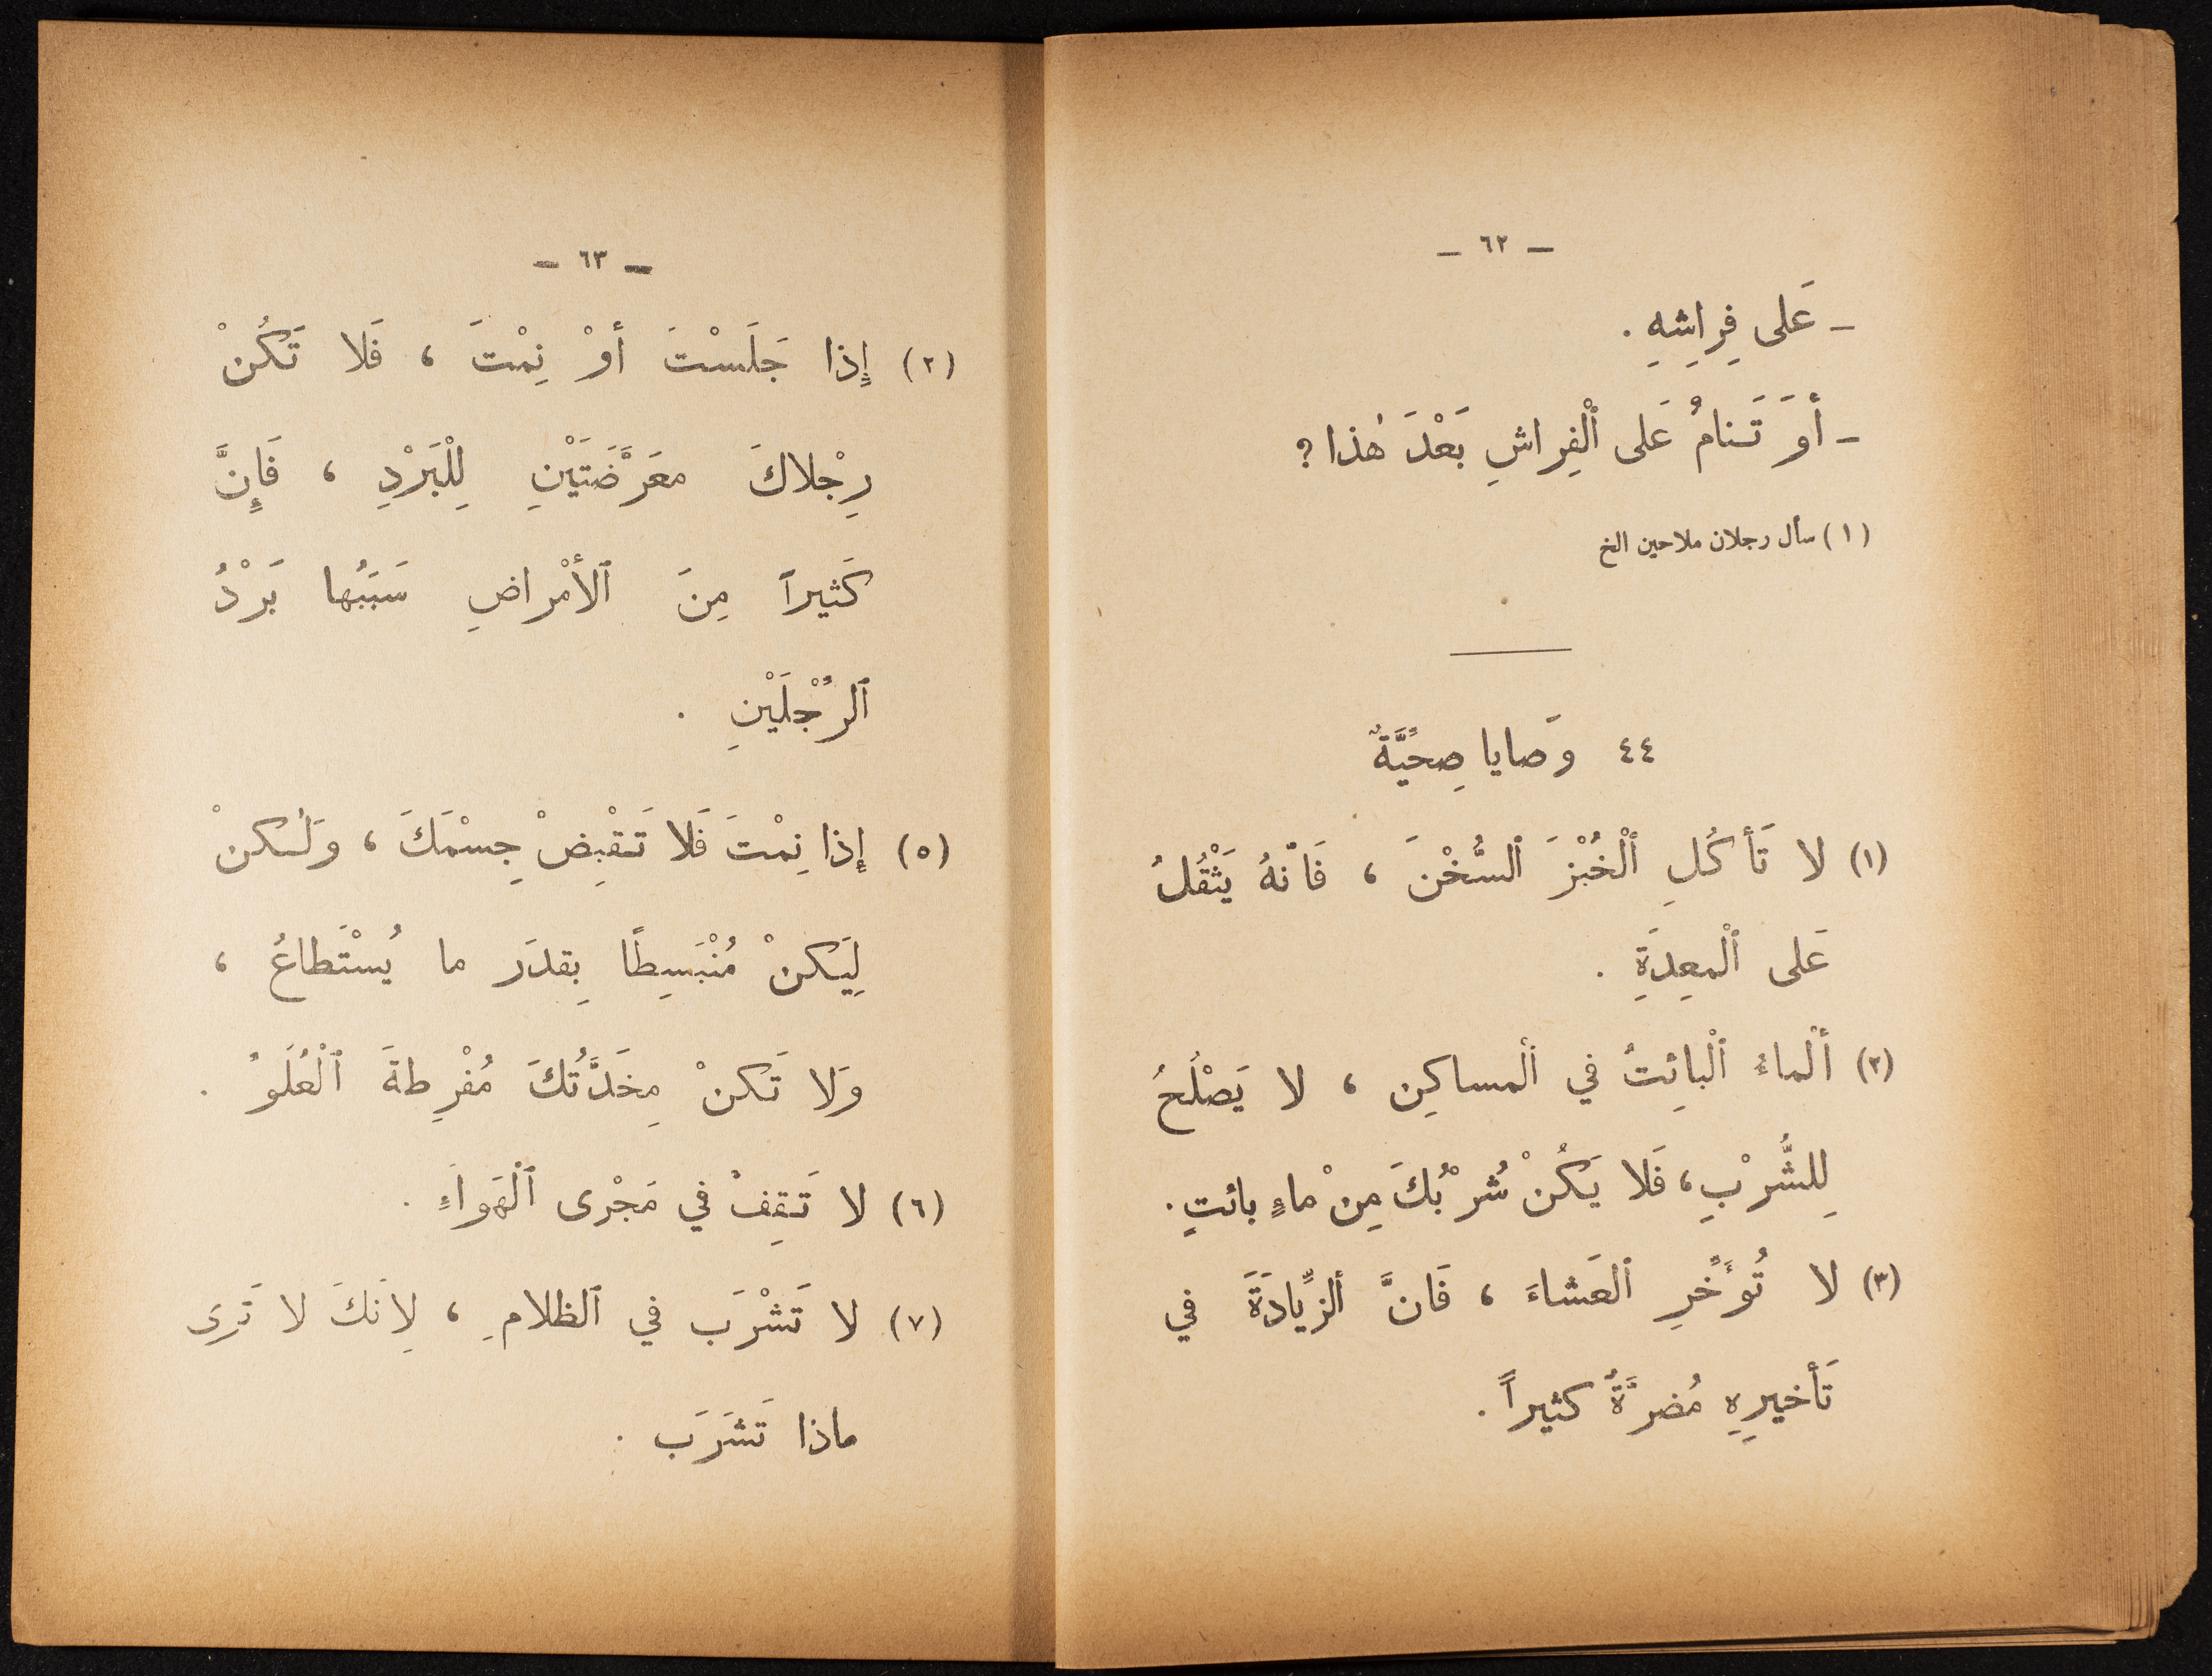 – ٦٢ –
– عَلى فِراشِهِ .
– أَوَ تَنامُ عَلى ٱلْفِراشِ بَعْدَ هٰذا ؟
(١) سأل رجلان ملاحين الخ
٤٤ وَصايا صِحِّيَّةٌ
(١) لا تَأكُلِ ٱلْخُبْزَ ٱلسُّخْنَ ، فَانّهُ يَثْقُلُ
عَلى ٱلْمعِدَةِ .
(٢) أَلْماءُ ٱلْبائِتُ في ٱلْمساكِن ، لا يَصْلُحُ
لِلشُّرْبِ ، فَلا يَكُنْ شُرْبُكَ مِنْ ماءٍ بائتٍ .
(٣) لا تُؤَخِّرِ ٱلعَشاءَ ، فَانَّ ٱلزِّيادَةَ في
تَأخيرِهِ مُضرَّةٌ كثيراً .
– ٦٣ –
(٢) إِذا جَلَسْتَ أَوْ نِمْتَ ، فَلا تَكُنْ
رِجْلاكَ معَرَّضَتَيْنِ لِلْبَرْدِ ، فَإِنَّ
كَثيراً مِنَ ٱلأَمْراضِ سَبَبُها بَرْدُ
ٱلرِّجْلَيْنِ .
(٥) إِذا نِمْتَ فَلا تَقْبِضْ جِسْمَكَ ، وَلٰكنْ
لِيَكنْ مُنْبَسِطًا بِقدَر ما يُسْتَطاعُ ،
وَلا تَكنْ مِخَدَّتُكَ مُفْرِطةَ ٱلْعُلَوُ .
(٦) لا تَقِفْ في مَجْرى ٱلْهَواءِ .
(٧) لا تَشْرَب في ٱلظلامِ ، لِانَكَ لا تَرى
ماذا تَشَرَب .